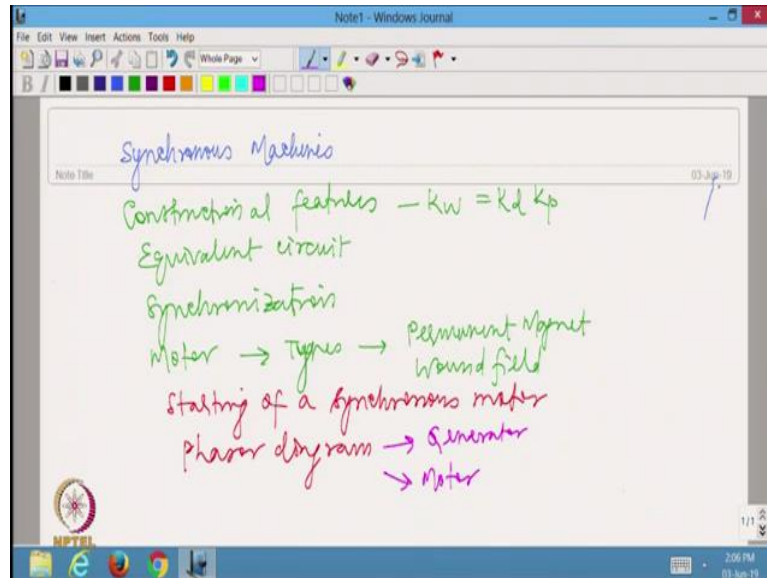 Note1 - Windows Journal
File Edit View Insert Actions Tools Help
Whole Page
B I
Synchronous Machines
Note Title
03-Jun-19
Constructional features - Kw = Kd Kp
Equivalent circuit
Synchronization
Motor → Types → Permanent Magnet
Wound field
Starting of a synchronous motor
Phasor diagram → Generator
→ Motor
NPTEL
1/1
2:06 PM
03-Jun-19